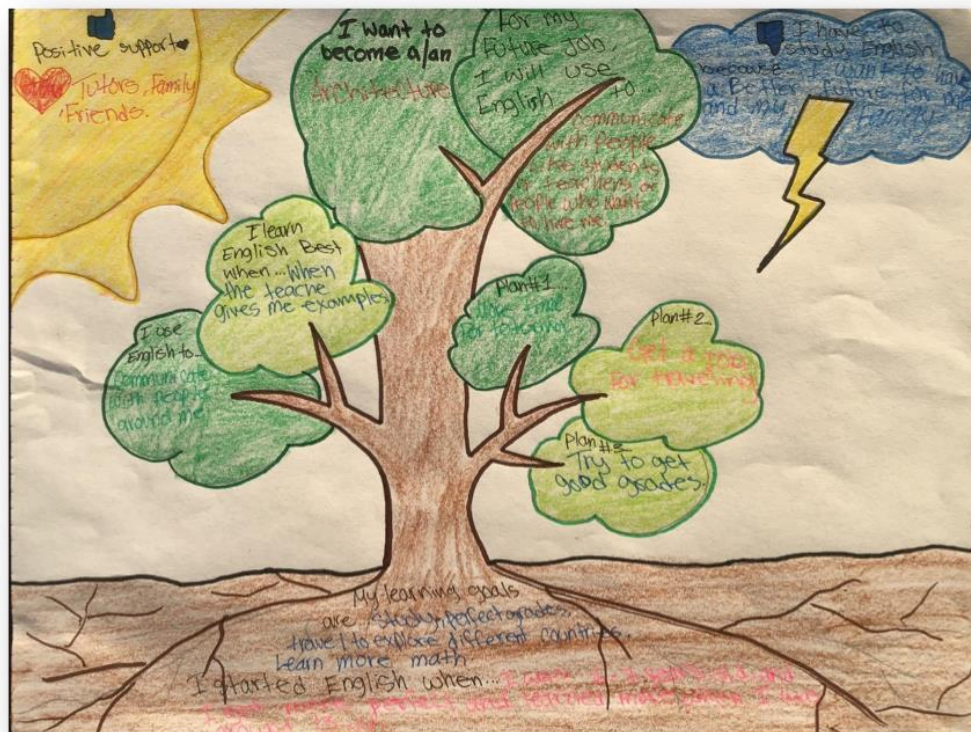 Positive support
Tutors, Family
Friends.
I want to
become a/an
Architecture
For my
Future Job,
I will use
English to...
communicate
with people
like students
or teachers or
people who want
to hire me.
I have to
study English
because I want to have
a Better future for me
and my Family
I learn
English Best
when...When
the teache
gives me examples
I use
English to...
Communicate
with people
around me.
Plan#1...
for
Plan#2...
Get a job
for traveling
Plan#3
Try to get
good grades.
My learning goals
are study, perfect grades,
travel to explore different countries.
Learn more math
I started English when...I was
perfect and learned more when I was